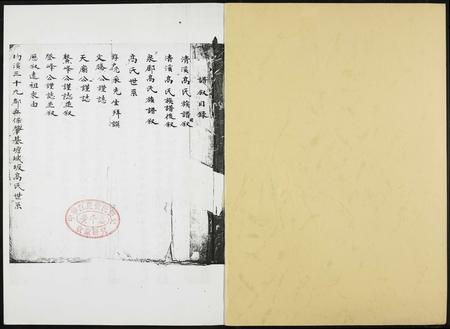 譜叙目錄
清溪高氏族譜叙
清溪高氏族譜後叙
泉郡高氏族譜叙
高氏世系
先生拜譔
文勝公謹誌
天爵公謹誌
鰲峰公謹誌並叙
登峰公謹誌並叙
歷叙遠祖來由
均溪三十九都無保肇基墟城坂高氏世系